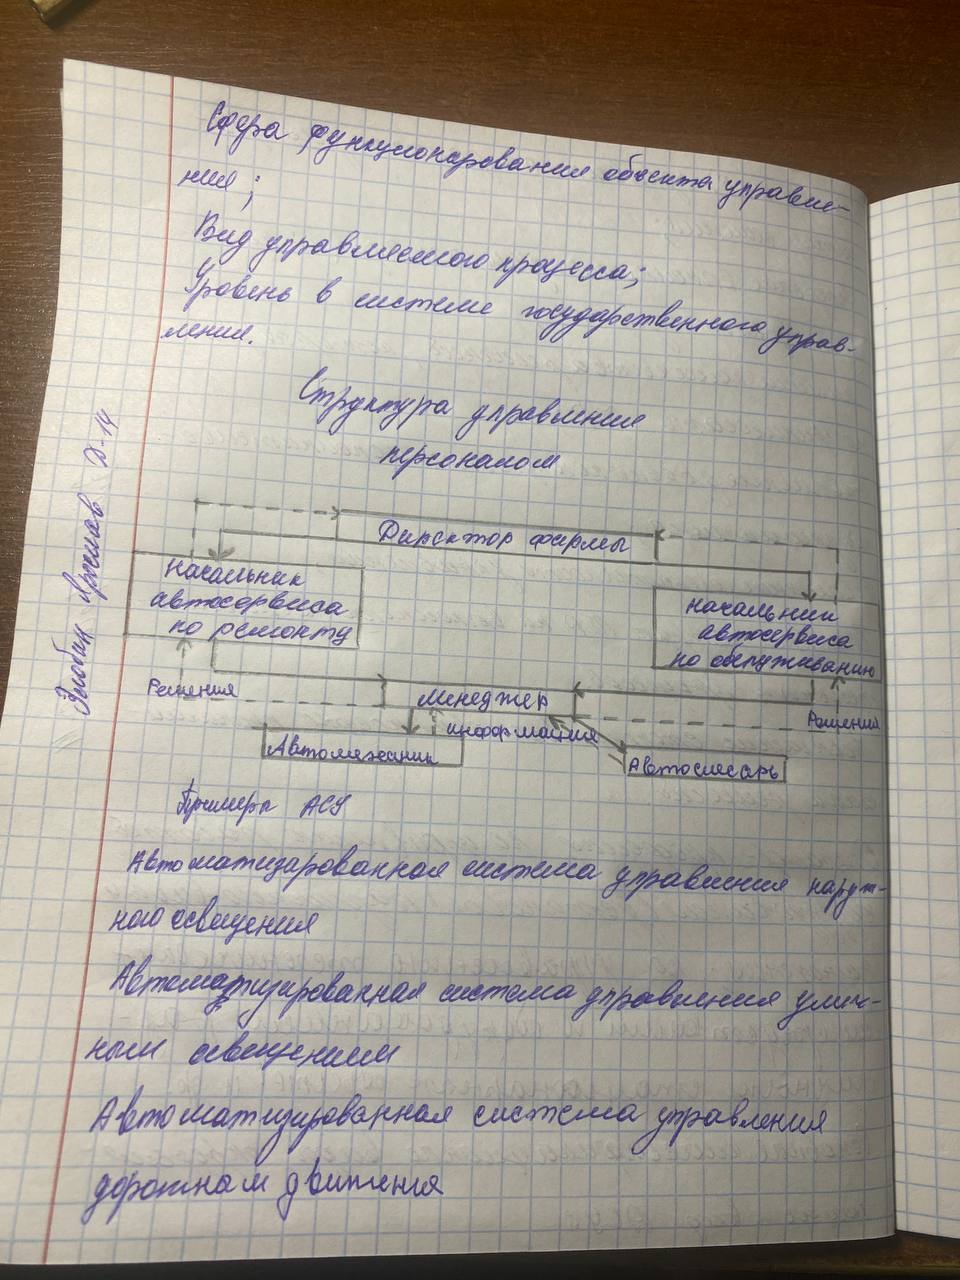 Сфера функционирования объекта управле-
ния;
Вид управляемого процесса;
Уровень в системе государственного управ-
ления.
Структура управления
персоналом
Директор фирмы
Начальник
автосервиса
по ремонту
начальник
автосервиса
по обслуживанию
Решения
менеджер
Решения
информация
Автомеханик
Автослесарь
Примеры АСУ
Автоматизированная система управления наруж-
ного освещения
Автоматизированная система управления улич-
ным освещением
Автоматизированная система управления
дорожном движения
Злобин Ярослав Д-14